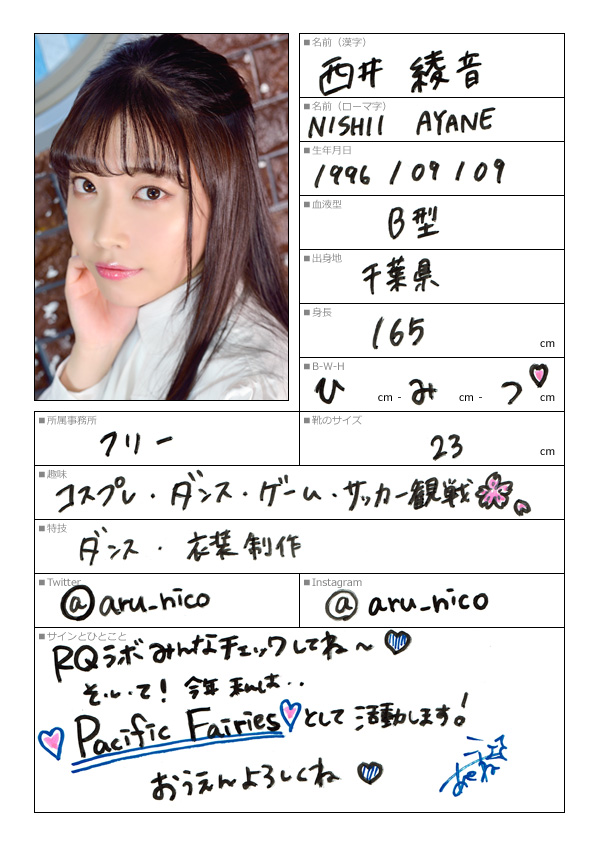 ■名前（漢字）
西井 綾音
■名前（ローマ字）
NISHII AYANE
■生年月日
1996 / 09 / 09
■血液型
B型
■出身地
千葉県
■身長
165 cm
■B-W-H
ひ cm - み cm - つ cm
■所属事務所
フリー
■靴のサイズ
23 cm
■趣味
コスプレ・ダンス・ゲーム・サッカー観戦
■特技
ダンス・衣装制作
■Twitter
@aru_nico
■Instagram
@aru_nico
■サインとひとこと
RQラボみんなチェックしてね～
そして! 今年 私は..
Pacific Fairies として活動します!
おうえんよろしくね